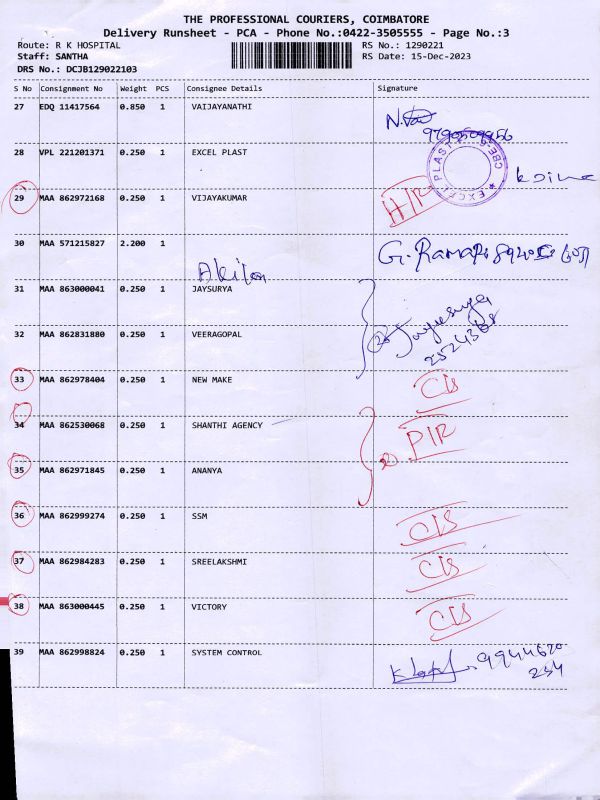 THE PROFESSIONAL COURIERS, COIMBATORE
Delivery Runsheet - PCA - Phone No.:0422-3505555 - Page No.:3
Route: R K HOSPITAL RS No.: 1290221
Staff: SANTHA RS Date: 15-Dec-2023
DRS No.: DCJB129022103
S No Consignment No Weight PCS Consignee Details Signature
27 EDQ 11417564 0.850 1 VAIJAYANATHI
28 VPL 221201371 0.250 1 EXCEL PLAST
EXCEL PLAST CBE-6
29 MAA 862972168 0.250 1 VIJAYAKUMAR
30 MAA 571215827 2.200 1
31 MAA 863000041 0.250 1 JAYSURYA
32 MAA 862831880 0.250 1 VEERAGOPAL
33 MAA 862978404 0.250 1 NEW MAKE
34 MAA 862530068 0.250 1 SHANTHI AGENCY
35 MAA 862971845 0.250 1 ANANYA
36 MAA 862999274 0.250 1 SSM
37 MAA 862984283 0.250 1 SREELAKSHMI
38 MAA 863000445 0.250 1 VICTORY
39 MAA 862998824 0.250 1 SYSTEM CONTROL
9944620
234